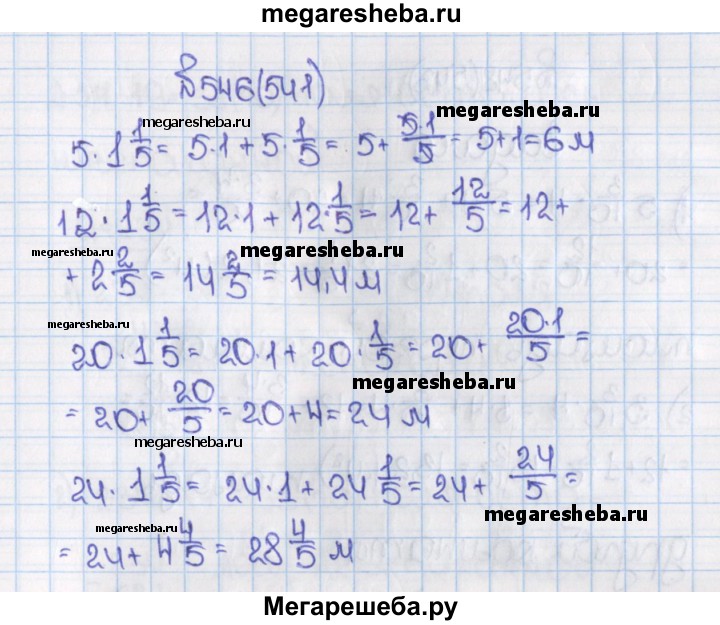 megaresheba.ru
№546(541)
megaresheba.ru
megaresheba.ru
5·1 1/5 = 5·1 + 5·1/5 = 5 + 5·1/5 = 5+1=6 м
12·1 1/5 = 12·1 + 12·1/5 = 12+ 12/5 = 12+
megaresheba.ru
megaresheba.ru
+ 2 2/5 = 14 2/5 = 14,4 м
megaresheba.ru
20·1 1/5 = 20·1 + 20·1/5 = 20+ 20·1/5 =
megaresheba.ru
= 20+ 20/5 = 20+4=24 м
megaresheba.ru
24·1 1/5 = 24·1 + 24 1/5 = 24+ 24/5 =
megaresheba.ru
megaresheba.ru
= 24+ 4 4/5 = 28 4/5 м
Мегарешеба.ру